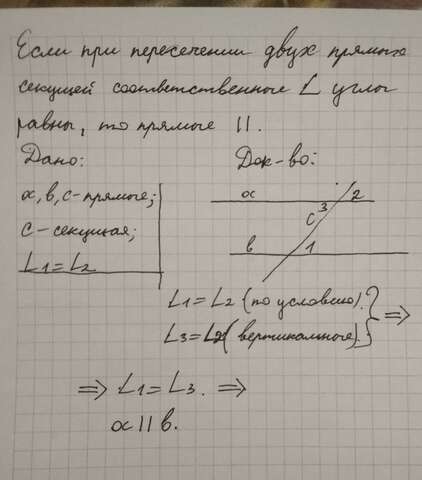 Если при пересечении двух прямых
секущей соответственные L углы
равны, то прямые ||.
Дано:
Док-во:
а, в, с - прямые;
с - секущая;
L1 = L2
а
2
3
с
в
1
L1 = L2 (по условию).
L3 = L2 (вертикальные).
} =>
=> L1 = L3. =>
а || в.